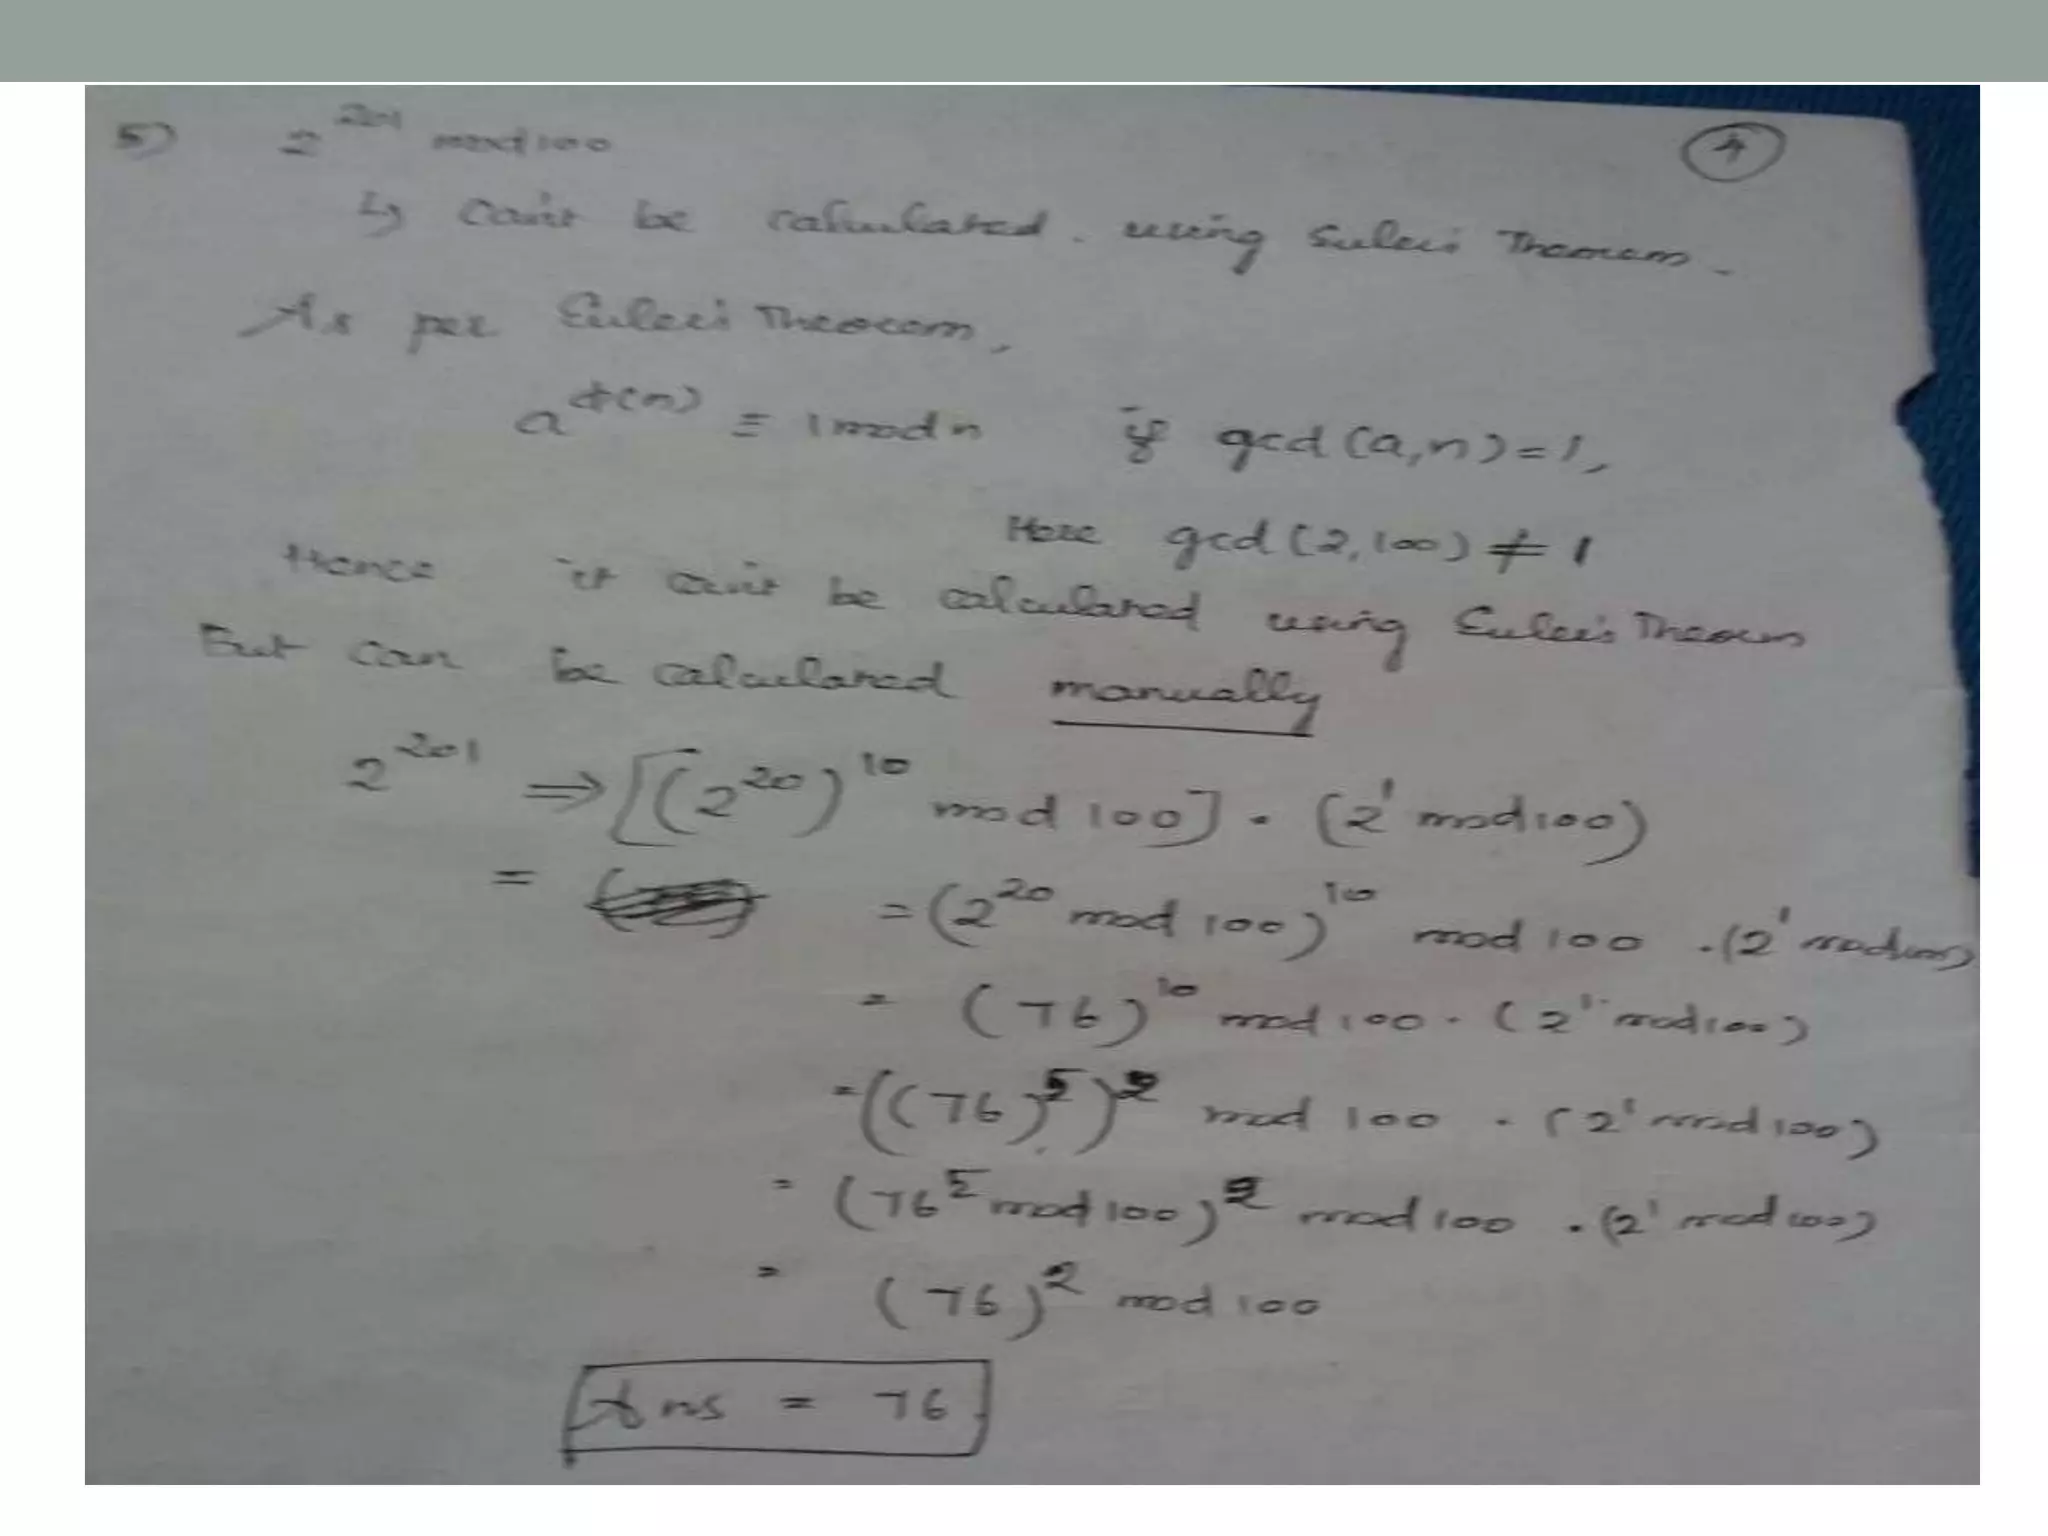 5) 2^201 mod 100
4
↳ Can't be calculated using Euler's Theorem.
As per Euler's Theorem,
a^ϕ(n) ≡ 1 mod n if gcd (a,n) = 1,
Here gcd (2,100) ≠ 1
Hence it can't be calculated using Euler's Theorem
But can be calculated manually
2^201 ⇒ [(2^20)^10 mod 100] . (2^1 mod 100)
= = (2^20 mod 100)^10 mod 100 . (2^1 mod 100)
= (76)^10 mod 100 . (2^1 mod 100)
= ((76)^5)^2 mod 100 . (2^1 mod 100)
= (76^5 mod 100)^2 mod 100 . (2^1 mod 100)
= (76)^2 mod 100
Ans = 76